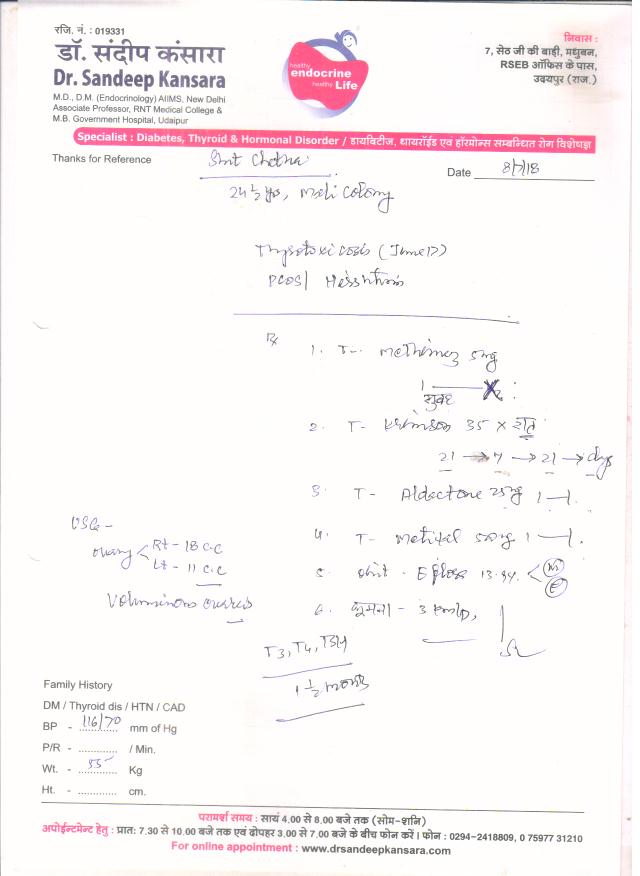 रजि. नं. : 019331
डॉ. संदीप कंसारा
Dr. Sandeep Kansara
M.D., D.M. (Endocrinology) AIIMS, New Delhi
Associate Professor, RNT Medical College &
M.B. Government Hospital, Udaipur
healthy
endocrine
healthy Life
निवास :
7, सेठ जी की बाड़ी, मधुबन,
RSEB ऑफिस के पास,
उदयपुर (राज.)
Specialist : Diabetes, Thyroid & Hormonal Disorder / डायबिटीज, थायरॉईड एवं हॉरमोन्स सम्बन्धित रोग विशेषज्ञ
Thanks for Reference Smt Chetna Date 8/7/18
24 1/2 yrs, Mali colony
Thyrotoxicosis (June 17)
PCOS/ Hirsutism
Rx
1. T- Methimez 5mg
1
सुबह
2. T- Krimson 35 x रात
21 → 7 → 21 → days
3. T- Aldactone 25mg 1-1.
4. T- 5mg 1-1.
5. Oint - Eflora 13.9%. < M E
6. घूमना - 3 km/D,
USG -
ovary < Rt - 18 c.c
Lt - 11 c.c
Voluminous ovaries
T3, T4, TSH
1 1/2 month
Family History
DM / Thyroid dis / HTN / CAD
BP - 116/70 mm of Hg
P/R - ............. / Min.
Wt. - 55 Kg
Ht. - ............. cm.
परामर्श समय : सायं 4.00 से 8.00 बजे तक (सोम-शनि)
अपोईन्टमेन्ट हेतु : प्रात: 7.30 से 10.00 बजे तक एवं दोपहर 3.00 से 7.00 बजे के बीच फोन करें। फोन : 0294-2418809, 0 75977 31210
For online appointment : www.drsandeepkansara.com